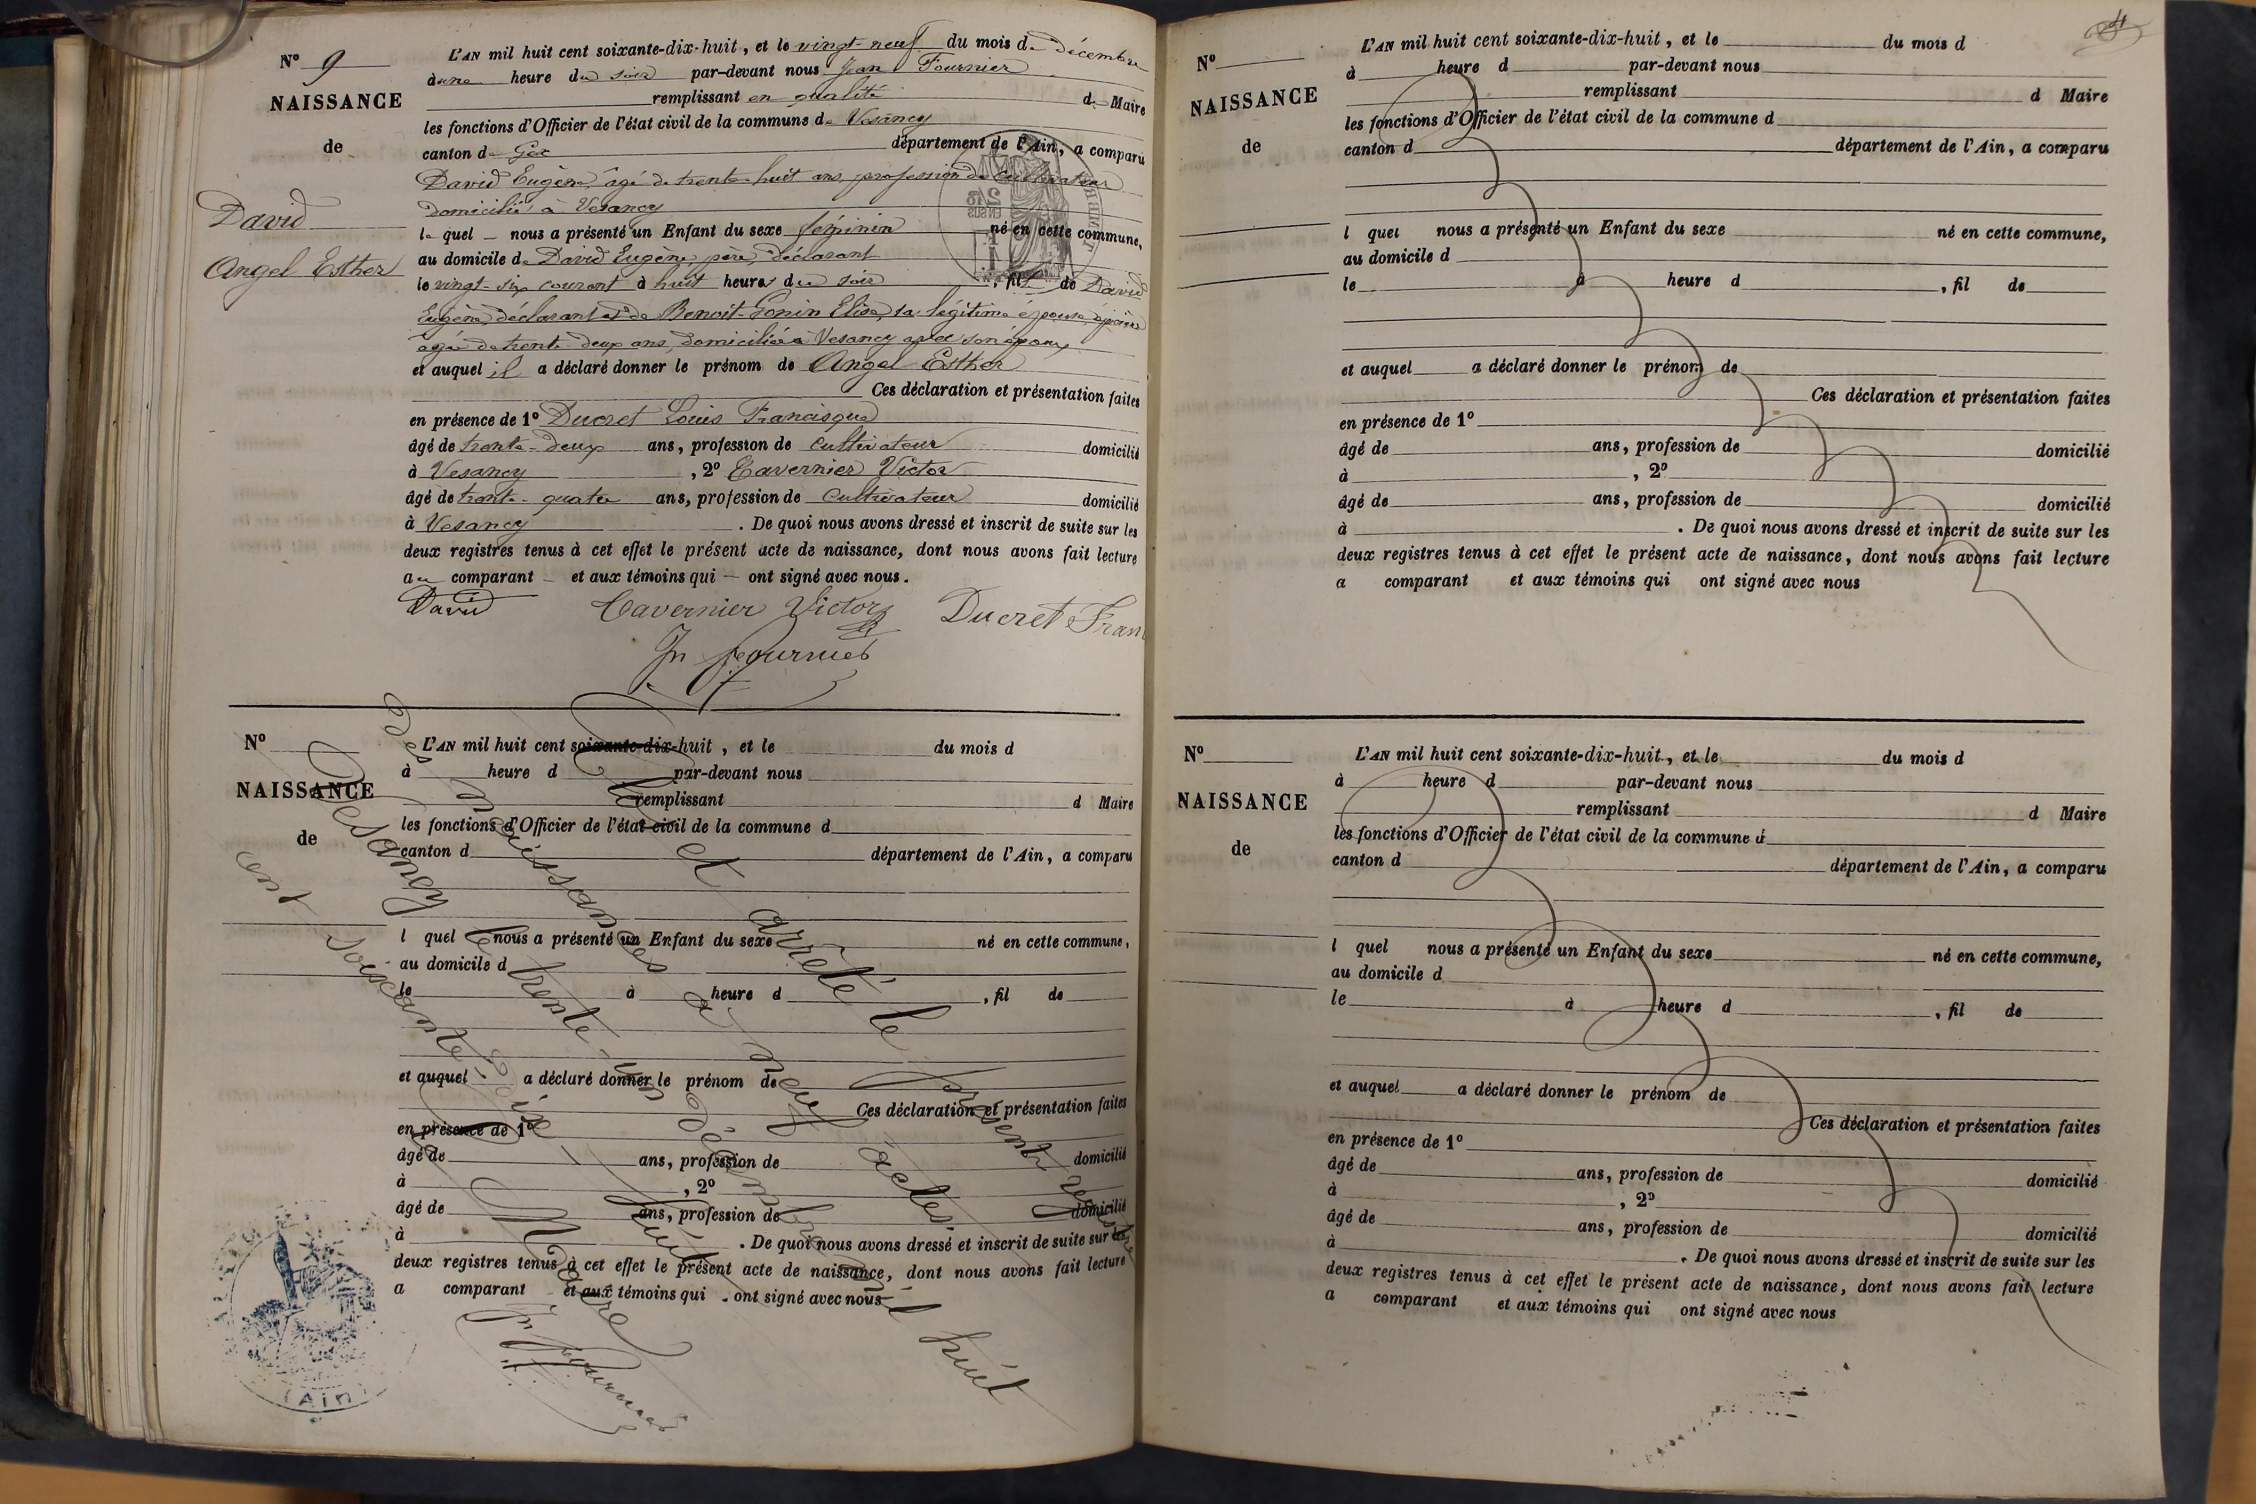 Nº 9
NAISSANCE
de
David
Angel Esther
L'AN mil huit cent soixante-dix-huit, et le vingt-neuf du mois de décembre
à une heure du soir par-devant nous Jean Fournier
remplissant en qualité de Maire
les fonctions d'Officier de l'état civil de la commune de Vesancy
canton de Gex département de l'Ain, a comparu
David Eugène, âgé de trente-huit ans, profession de cultivateur
domicilié à Vesancy
le quel nous a présenté un Enfant du sexe féminin né en cette commune,
au domicile de David Eugène, père, déclarant
le vingt-six courant à huit heures du soir, fille de David
Eugène, déclarant et de Benoit-Gonin Elisa, sa légitime épouse,
âgée de trente deux ans, domiciliée à Vesancy avec son époux
et auquel il a déclaré donner le prénom de Angel Esther
Ces déclaration et présentation faites
en présence de 1º Ducret Louis Francisque
âgé de trente-deux ans, profession de cultivateur domicilié
à Vesancy, 2º Tavernier Victor
âgé de trente-quatre ans, profession de cultivateur domicilié
à Vesancy. De quoi nous avons dressé et inscrit de suite sur les
deux registres tenus à cet effet le présent acte de naissance, dont nous avons fait lecture
au comparant et aux témoins qui ont signé avec nous.
David Tavernier Victor Ducret Fran
Jn Fournier
Nº
NAISSANCE
de
L'AN mil huit cent soixante-dix-huit, et le du mois d
à heure d par-devant nous
remplissant d Maire
les fonctions d'Officier de l'état civil de la commune d
canton d département de l'Ain, a comparu
l quel nous a présenté un Enfant du sexe né en cette commune,
au domicile d
le à heure d , fil de
et auquel a déclaré donner le prénom de
Ces déclaration et présentation faites
en présence de 1º
âgé de ans, profession de domicilié
à , 2º
âgé de ans, profession de domicilié
à . De quoi nous avons dressé et inscrit de suite sur les
deux registres tenus à cet effet le présent acte de naissance, dont nous avons fait lecture
a comparant et aux témoins qui ont signé avec nous
Clos et arrêté le présent registre
des naissances à neuf actes.
Vesancy le trente-un décembre mil huit
cent soixante-dix-huit
Le Maire
Jn Fournier
(Ain)
Nº
NAISSANCE
de
L'AN mil huit cent soixante-dix-huit, et le du mois d
à heure d par-devant nous
remplissant d Maire
les fonctions d'Officier de l'état civil de la commune d
canton d département de l'Ain, a comparu
l quel nous a présenté un Enfant du sexe né en cette commune,
au domicile d
le à heure d , fil de
et auquel a déclaré donner le prénom de
Ces déclaration et présentation faites
en présence de 1º
âgé de ans, profession de domicilié
à , 2º
âgé de ans, profession de domicilié
à . De quoi nous avons dressé et inscrit de suite sur les
deux registres tenus à cet effet le présent acte de naissance, dont nous avons fait lecture
a comparant et aux témoins qui ont signé avec nous
Nº
NAISSANCE
de
L'AN mil huit cent soixante-dix-huit, et le du mois d
à heure d par-devant nous
remplissant d Maire
les fonctions d'Officier de l'état civil de la commune d
canton d département de l'Ain, a comparu
l quel nous a présenté un Enfant du sexe né en cette commune,
au domicile d
le à heure d , fil de
et auquel a déclaré donner le prénom de
Ces déclaration et présentation faites
en présence de 1º
âgé de ans, profession de domicilié
à , 2º
âgé de ans, profession de domicilié
à . De quoi nous avons dressé et inscrit de suite sur les
deux registres tenus à cet effet le présent acte de naissance, dont nous avons fait lecture
a comparant et aux témoins qui ont signé avec nous